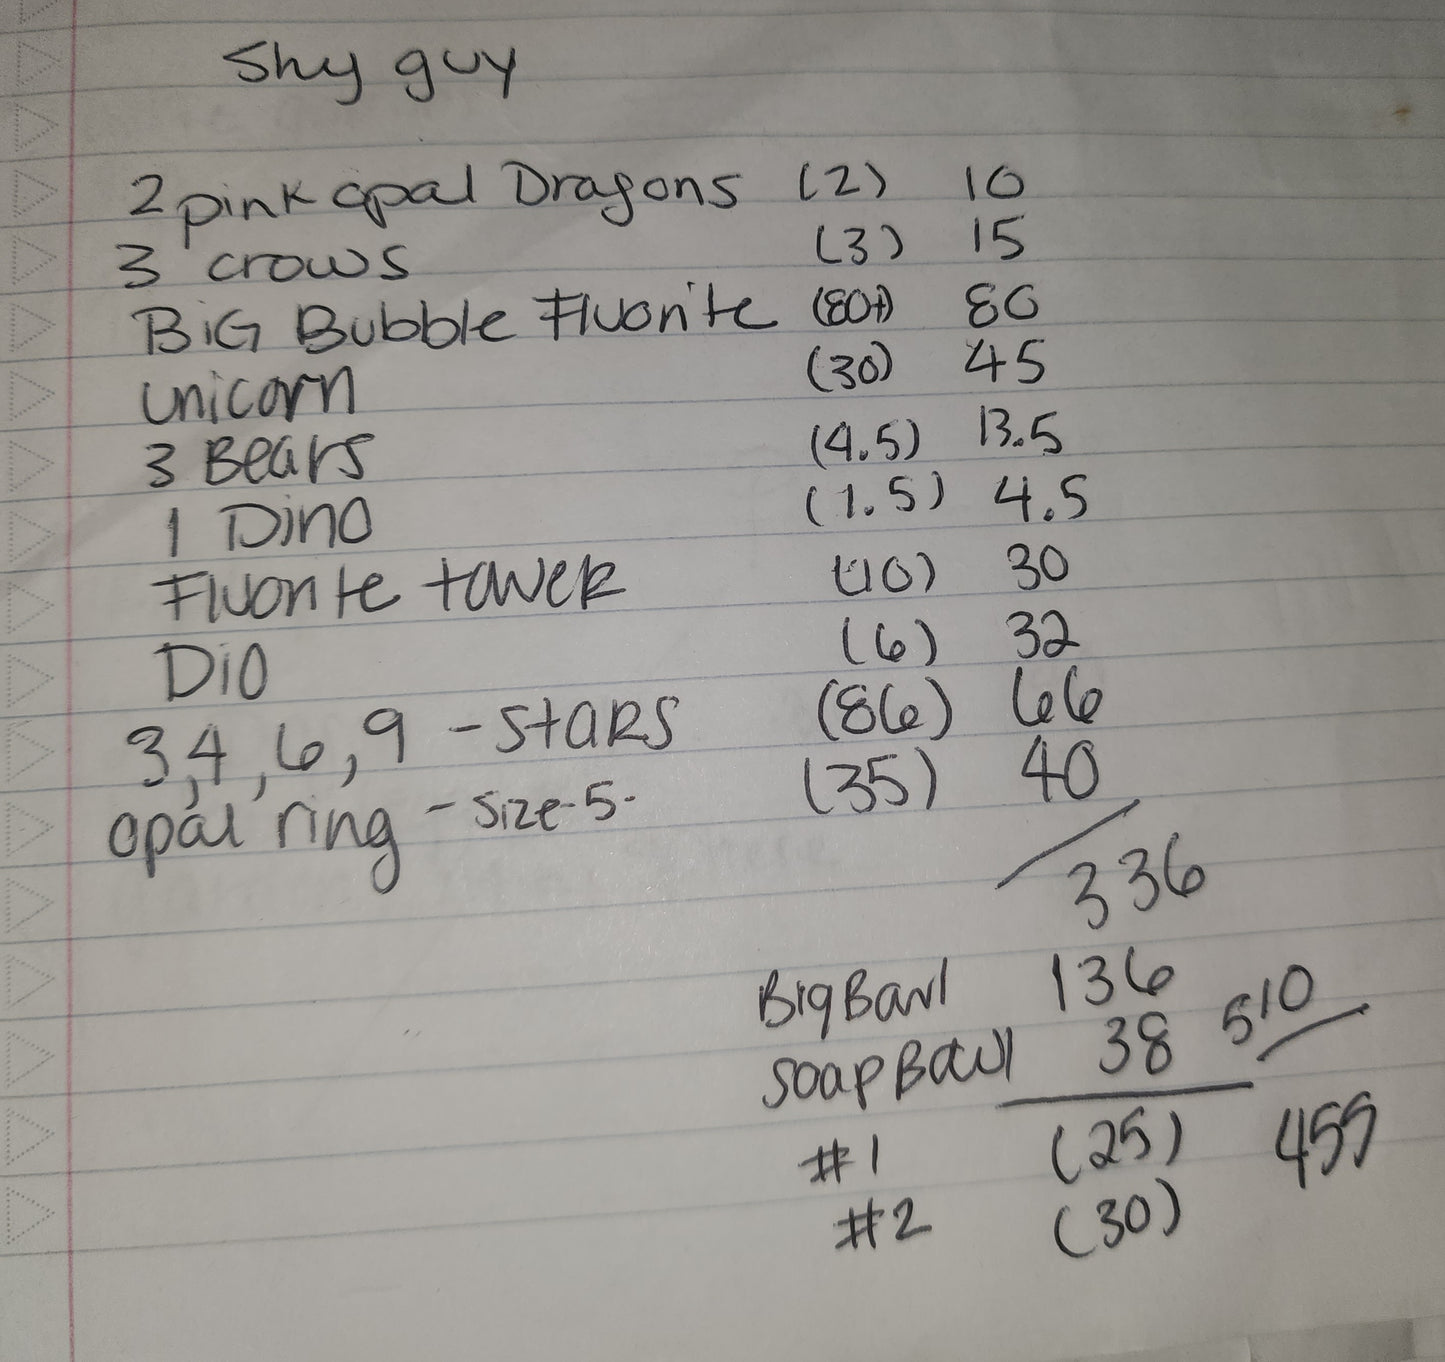 Shy guy
2 pink opal Dragons (2) 10
3 crows (3) 15
BiG Bubble Fluorite (80+) 80
unicorn (30) 45
3 Bears (4.5) 13.5
1 Dino (1.5) 4.5
Fluorite toweR (10) 30
DiO (6) 32
3,4,6,9 - staRS (86) 66
opal ring - size-5- (35) 40
336
BigBowl 136
soapBowl 38 510
#1 (25) 455
#2 (30)